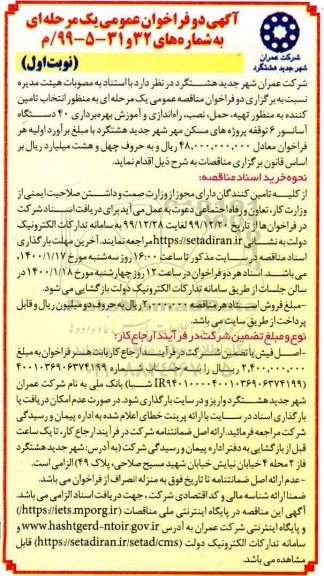 آگهی دو فراخوان عمومی یک مرحله ای
به شماره های ۳۲ و ۳۱-۵-۹۹/م
(نوبت اول)
شرکت عمران
شهر جدید هشتگرد
شرکت عمران شهر جدید هشتگرد در نظر دارد با استناد به مصوبات هیئت مدیره
نسبت به برگزاری دو فراخوان مناقصه عمومی یک مرحله ای به منظور انتخاب تامین
کننده به منظور تهیه، حمل، نصب، راه اندازی و آموزش بهره برداری ۴۰ دستگاه
آسانسور ۶ توقفه پروژه های مسکن مهر شهر جدید هشتگرد با مبلغ برآورد اولیه هر
فراخوان معادل ۴۸,۰۰۰,۰۰۰,۰۰۰ ریال و به حروف چهل و هشت میلیارد ریال بر
اساس قانون برگزاری مناقصات به شرح ذیل اقدام نماید.
نحوه خرید اسناد مناقصه:
از کلیه تامین کنندگان دارای مجوز از وزارت صمت و داشتن صلاحیت ایمنی از
وزارت کار، تعاون و رفاه اجتماعی دعوت به عمل می آید برای دریافت اسناد شرکت
در فراخوان ها از تاریخ ۹۹/۱۲/۲۰ لغایت ۹۹/۱۲/۲۸ به سامانه تدارکات الکترونیک
دولت به نشانی https://setadiran.ir مراجعه نمایند. آخرین مهلت بارگذاری
اسناد مناقصه در سایت مذکور تا ساعت ۱۶:۰۰ روز سه شنبه مورخ ۱۴۰۰/۱/۱۷
می باشد. اسناد هر دو فراخوان در ساعت ۱۲ روز چهارشنبه مورخ ۱۴۰۰/۱/۱۸ در
سالن جلسات از طریق سامانه تدارکات الکترونیک دولت بازگشایی می شود.
-مبلغ فروش اسناد هر مناقصه ۲.۰۰۰.۰۰۰ ریال به حروف دو میلیون ریال و قابل
پرداخت از طریق سایت می باشد.
نوع و مبلغ تضمین شرکت در فرآیند ارجاع کار:
-اصل فیش یا تضمین شرکت در فرآیند ارجاع کار بابت هر فراخوان به مبلغ
۲,۴۰۰,۰۰۰,۰۰۰ ریال
شبا) بانک ملی به نام شرکت عمران
شهر جدید هشتگرد واریز و در سایت بارگذاری شود. در صورت عدم امکان دریافت یا
بارگذاری اسناد در سایت با ارائه پرینت خطای اعلام شده به اداره پیمان و رسیدگی
شرکت مراجعه فرمائید. ارائه اصل ضمانتنامه شرکت در فرآیند ارجاع کار، تا یک ساعت
قبل از بازگشایی به دفتر اداره پیمان و رسیدگی شرکت (به آدرس: شهر جدید هشتگرد
فاز ۲ محله ۴ خیابان نیایش خیابان شهید مسیح صلاحی، پلاک ۴۹) الزامی است.
-عدم ارائه اصل ضمانتنامه تا تاریخ فوق به منزله انصراف از فراخوان می باشد.
ضمنا ارائه شناسه ملی و کد اقتصادی شرکت، جهت دریافت اسناد الزامی می باشد.
آگهی این مناقصه در پایگاه اینترنتی ملی مناقصات (https://iets.mporg.ir)
و پایگاه اینترنتی شرکت عمران به آدرس www.hashtgerd-ntoir.gov.ir و
سامانه تدارکات الکترونیک دولت (https://setadiran.ir/setad/cms) قابل
مشاهده می باشد.